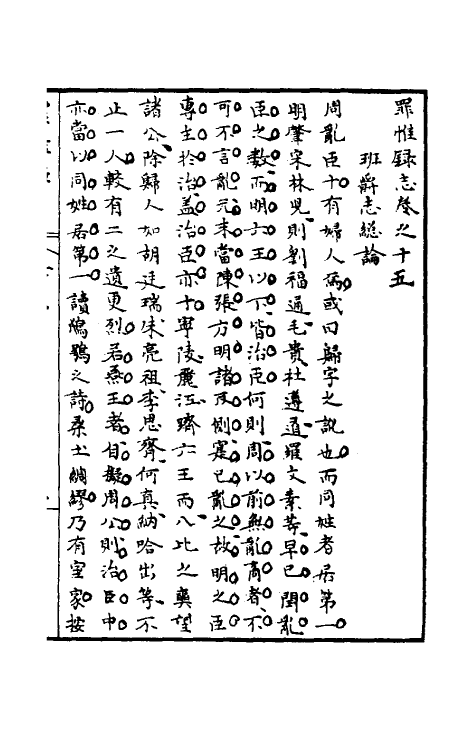 罪惟錄志卷之十五
班爵志總論
周亂臣十有婦人焉或曰歸字之說也而同姓者居第一
明肇宋林兒則劉福通毛貴杜遵道羅文素等早已開亂
臣之數而明六王以下皆治臣何則周以前無亂商者不
可不言亂元末當陳張方明諸反側寔已亂之故明之臣
專主於治蓋治臣亦十寧陵麗江濟六王而八比之奭望
諸公除歸人如胡廷瑞朱亮祖李思齊何真納哈出等不
止一人較有二之遺更烈若燕王者自擬周公則治臣中
亦當以同姓居第一讀鴟鴞之詩桑土綢繆乃有室家按